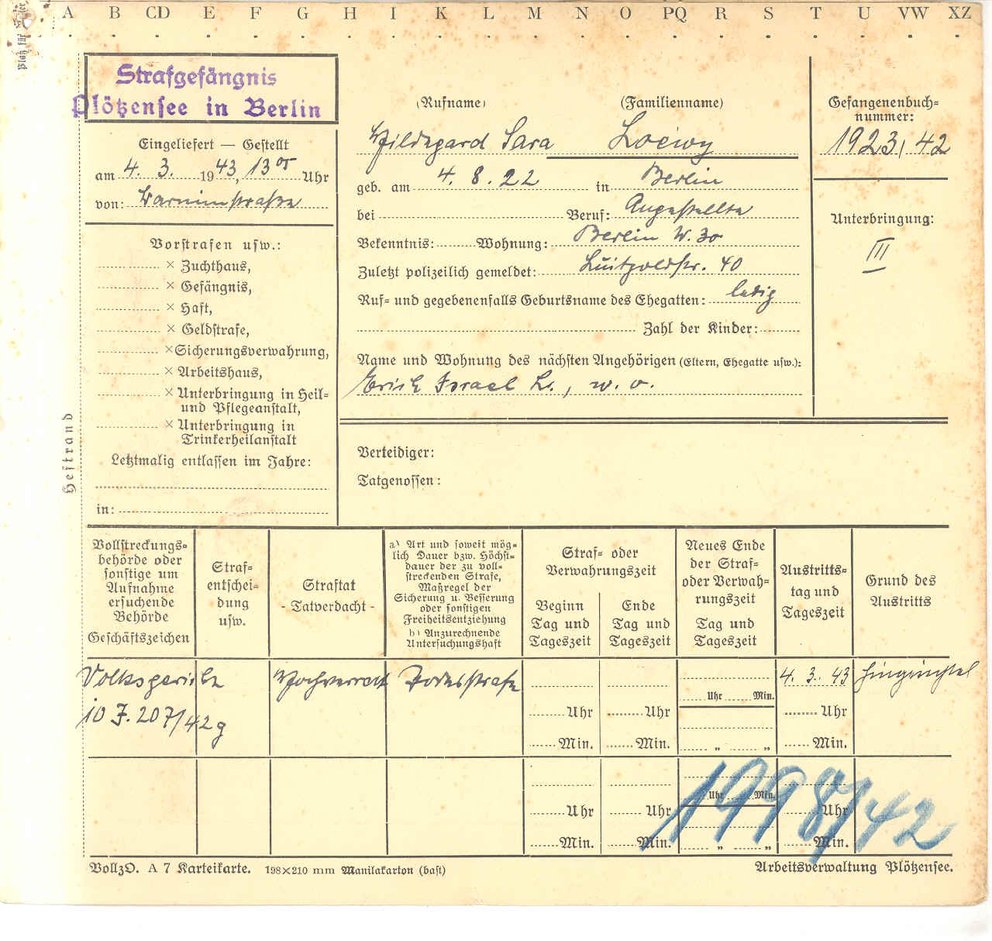 A B CD E F G H I K L M N O PQ R S T U VW XZ
Strafgefängnis
Plötzensee in Berlin
Eingeliefert — Gestellt
am 4. 3. 1943, 13⁰⁵ Uhr
von: Barnimstraße
Vorstrafen usw.:
× Zuchthaus,
× Gefängnis,
× Haft,
× Geldstrafe,
× Sicherungsverwahrung,
× Arbeitshaus,
× Unterbringung in Heil-
und Pflegeanstalt,
× Unterbringung in
Trinkerheilanstalt
Letztmalig entlassen im Jahre:
in:
Heftrand
(Rufname) (Familienname)
Hildegard Sara Loewy
geb. am 4. 8. 22 in Berlin
bei Beruf: Angestellte
Bekenntnis: Wohnung: Berlin W. 30
Zuletzt polizeilich gemeldet: Luitpoldstr. 40
Ruf- und gegebenenfalls Geburtsname des Ehegatten: ledig
Zahl der Kinder:
Name und Wohnung des nächsten Angehörigen (Eltern, Ehegatte usw.):
Erich Israel L., w. o.
Gefangenenbuch-
nummer:
1923/42
Unterbringung:
III
Verteidiger:
Tatgenossen:
Vollstreckungs-
behörde oder
sonstige um
Aufnahme
ersuchende
Behörde
Geschäftszeichen
Straf-
entschei-
dung
usw.
Straftat
- Tatverdacht -
a) Art und soweit mög-
lich Dauer bzw. Höchst-
dauer der zu voll-
streckenden Strafe,
Maßregel der
Sicherung u. Besserung
oder sonstigen
Freiheitsentziehung
b) Anzurechnende
Untersuchungshaft
Straf- oder
Verwahrungszeit
Beginn
Tag und
Tageszeit
Ende
Tag und
Tageszeit
Neues Ende
der Straf-
oder Verwah-
rungszeit
Tag und
Tageszeit
Austritts-
tag und
Tageszeit
Grund des
Austritts
Volksgericht Hochverrat Todesstrafe 4. 3. 43 hingerichtet
Uhr Min.
10 J. 207/42g
Uhr Uhr Uhr
Min. Min. „ „ Min.
Uhr Min.
1998/42
Uhr Uhr Uhr
Min. Min. „ „ Min.
VollzO. A 7 Karteikarte. 198×210 mm Manilakarton (hast) Arbeitsverwaltung Plötzensee.